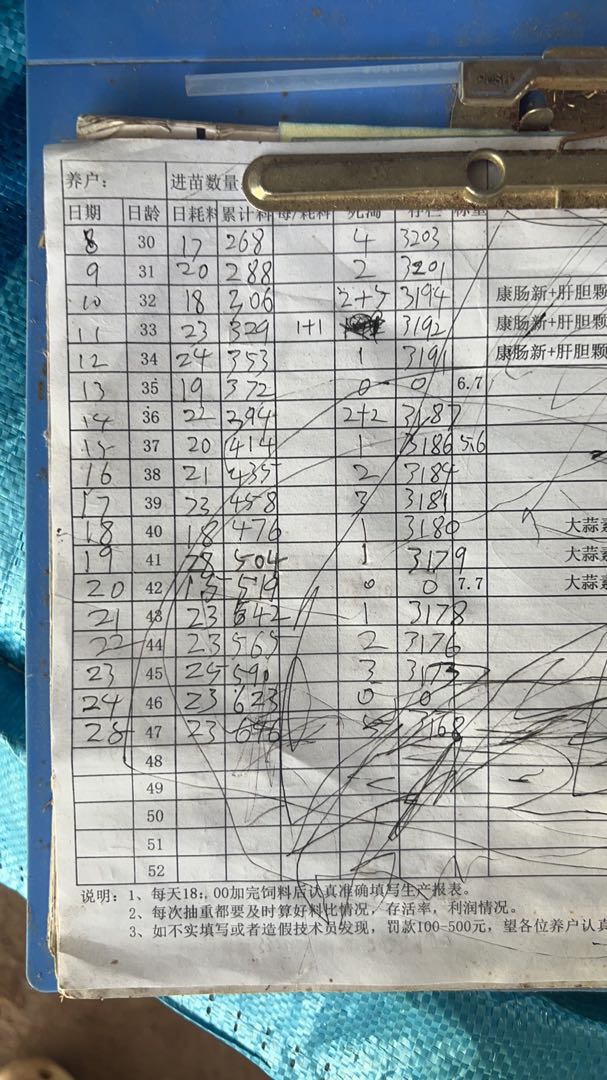 养户： 进苗数量
日期 日龄 日耗料 累计料 每/耗料 死淘 存栏 称重
8 30 17 268 4 3203
9 31 20 288 2 3201
10 32 18 306 2+5 3194 康肠新+肝胆颗
11 33 23 329 1+1 3192 康肠新+肝胆颗
12 34 24 353 1 3191 康肠新+肝胆颗
13 35 19 372 0 0 6.7
14 36 22 394 2+2 3187
15 37 20 414 1 3186 5.6
16 38 21 435 2 3184
17 39 23 458 3 3181
18 40 18 476 1 3180 大蒜素
19 41 28 504 1 3179 大蒜素
20 42 15 519 0 0 7.7 大蒜素
21 43 23 542 1 3178
22 44 23 565 2 3176
23 45 25 590 3 3173
24 46 23 623 0 0
25 47 23 646 3168
48
49
50
51
52
说明：1、每天18：00加完饲料后认真准确填写生产报表。
2、每次抽重都要及时算好料比情况，存活率，利润情况。
3、如不实填写或者造假技术员发现，罚款100-500元，望各位养户认真